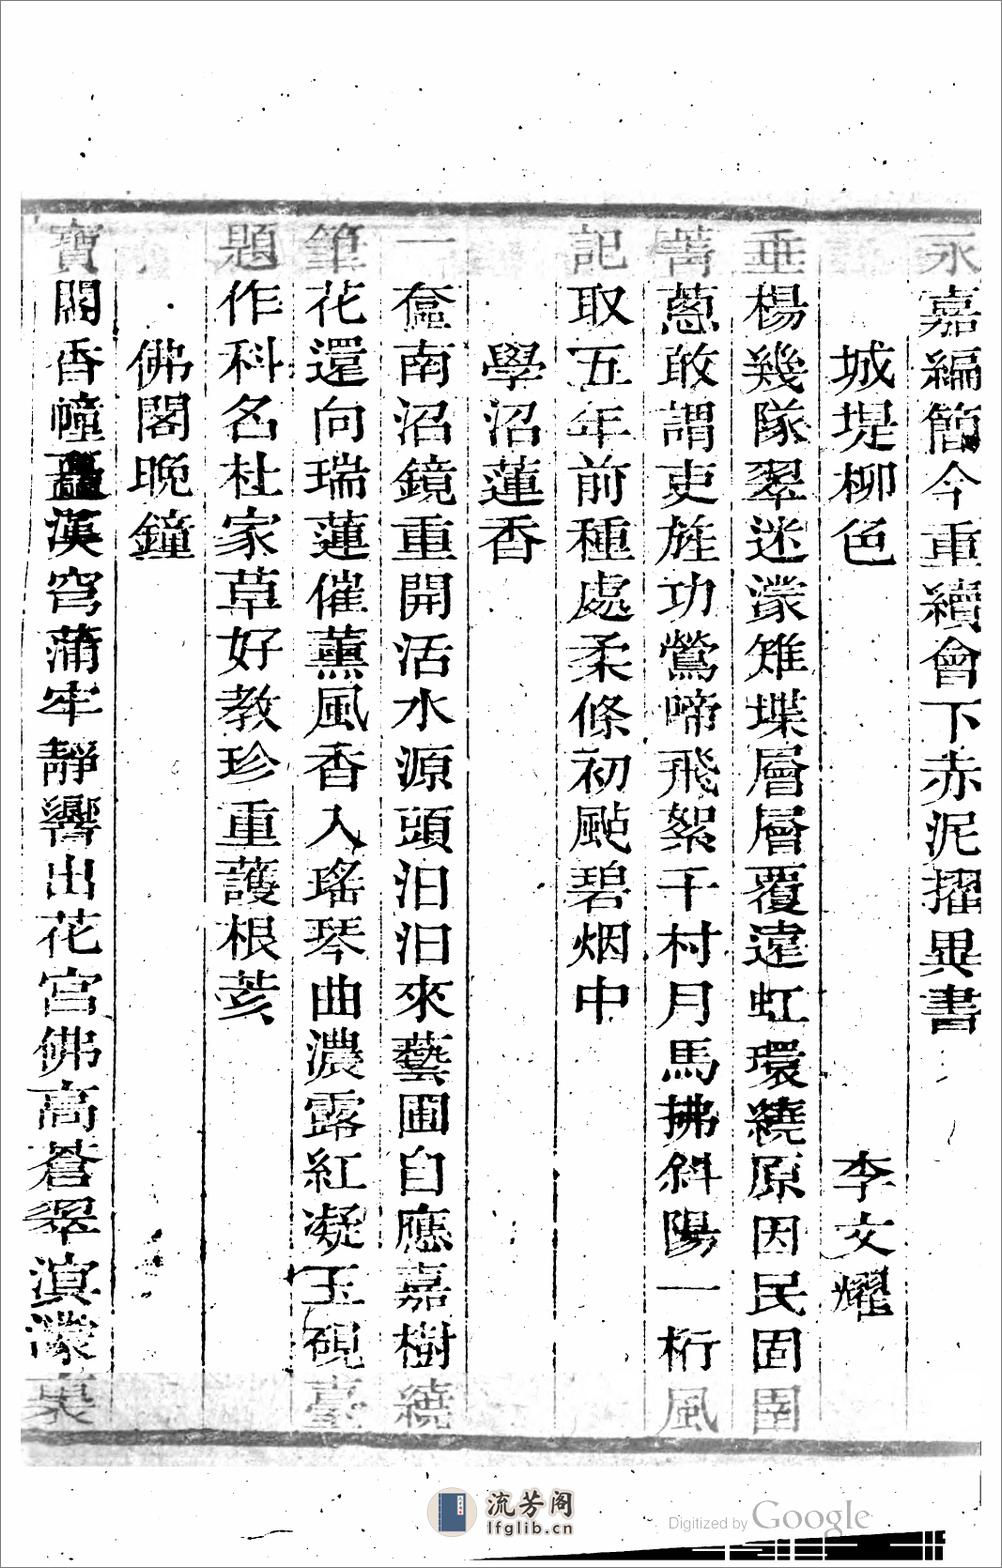 永嘉編簡今重續會下赤泥擢異書
城堤柳色　李文耀
垂楊幾隊翠迷濛雉堞層層覆遠虹環繞原因民固圉
菁蔥敢謂吏旌功鶯啼飛絮千村月馬拂斜陽一桁風
記取五年前種處柔條初颭碧烟中
學沼蓮香
一奩南沼鏡重開活水源頭汩汩來藝圃自應嘉樹繞
筆花還向瑞蓮催薰風香入瑤琴曲濃露紅凝玉硯臺
題作科名杜家草好教珍重護根荄
佛閣晚鐘
寶閣香幢矗漢穹蒲牢靜響出花宮佛高蒼翠溟濛裏
流芳阁
lfglib.cn
Digitized by Google